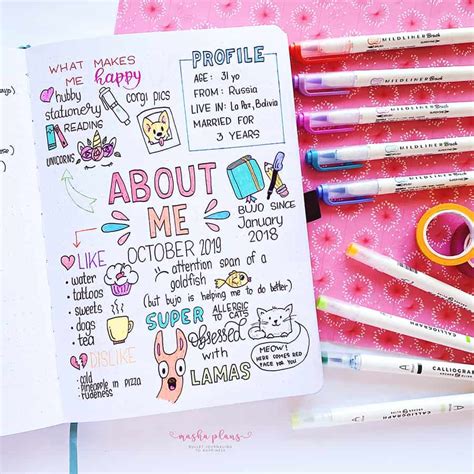 WHAT MAKES
ME happy
hubby
stationery
corgi pics
READING
UNICORNS
PROFILE
AGE: 31 yo
FROM: Russia
LIVE IN: La Paz, Bolivia
MARRIED FOR
3 YEARS
ABOUT
ME
OCTOBER 2019
BUJO SINCE
January
2018
LIKE
• water
• tattoos
• sweets
• dogs
• tea
attention span of a
goldfish
(but bujo is helping me to do better)
SUPER
ALLERGIC
TO CATS
MEOW!
HERE COMES RED
FACE FOR YOU
Obsessed
with
LAMAS
DISLIKE
• cold
• pineapple in pizza
• rudeness
masha plans
BULLET JOURNALING
TO HAPPINESS
WILDLINER Brush
WILDLINER Brush
WILDLINER Brush
WILDLINER Brush
WILDLINER Brush
CALLIGRAPH
CALLIGRAPH
CALLIGRAPH